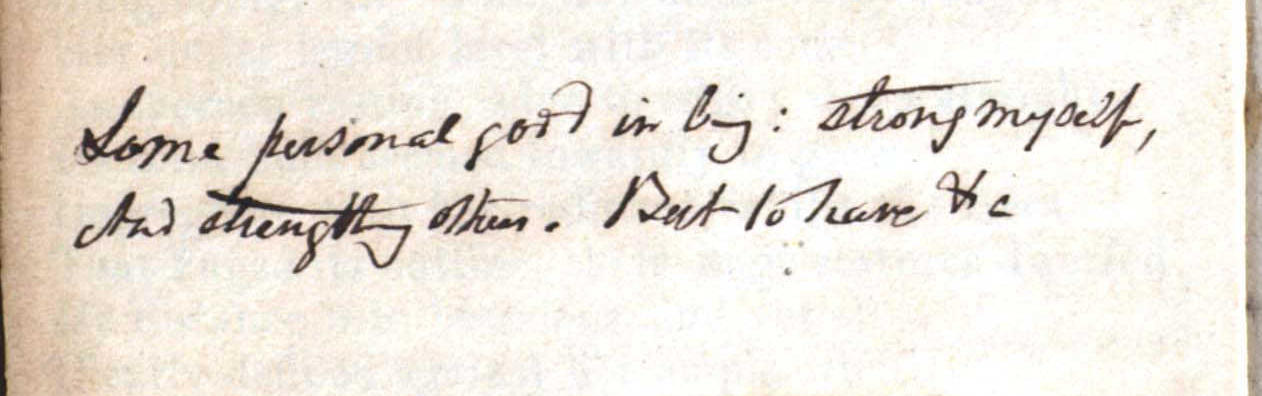 Some personal good in big: strong myself,
And strength others. But to have &c